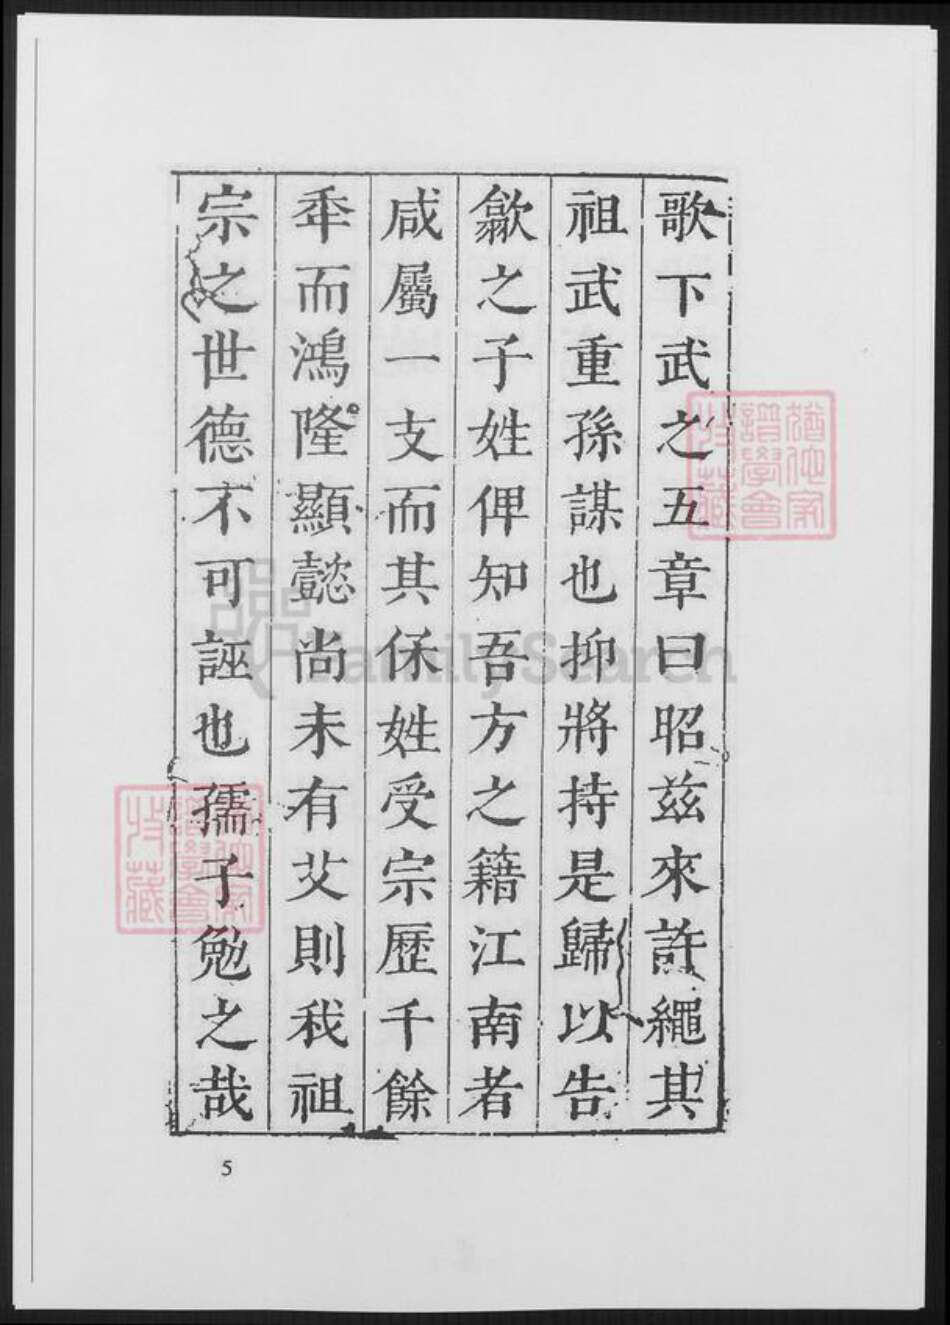 歌下武之五章曰昭兹來許繩其
祖武重孫謀也抑將持是歸以告
歙之子姓俾知吾方之籍江南者
咸屬一支而其保姓受宗歷千餘
年而鴻隆顯懿尚未有艾則我祖
宗之世德不可誣也孺子勉之哉
5
FamilySearch